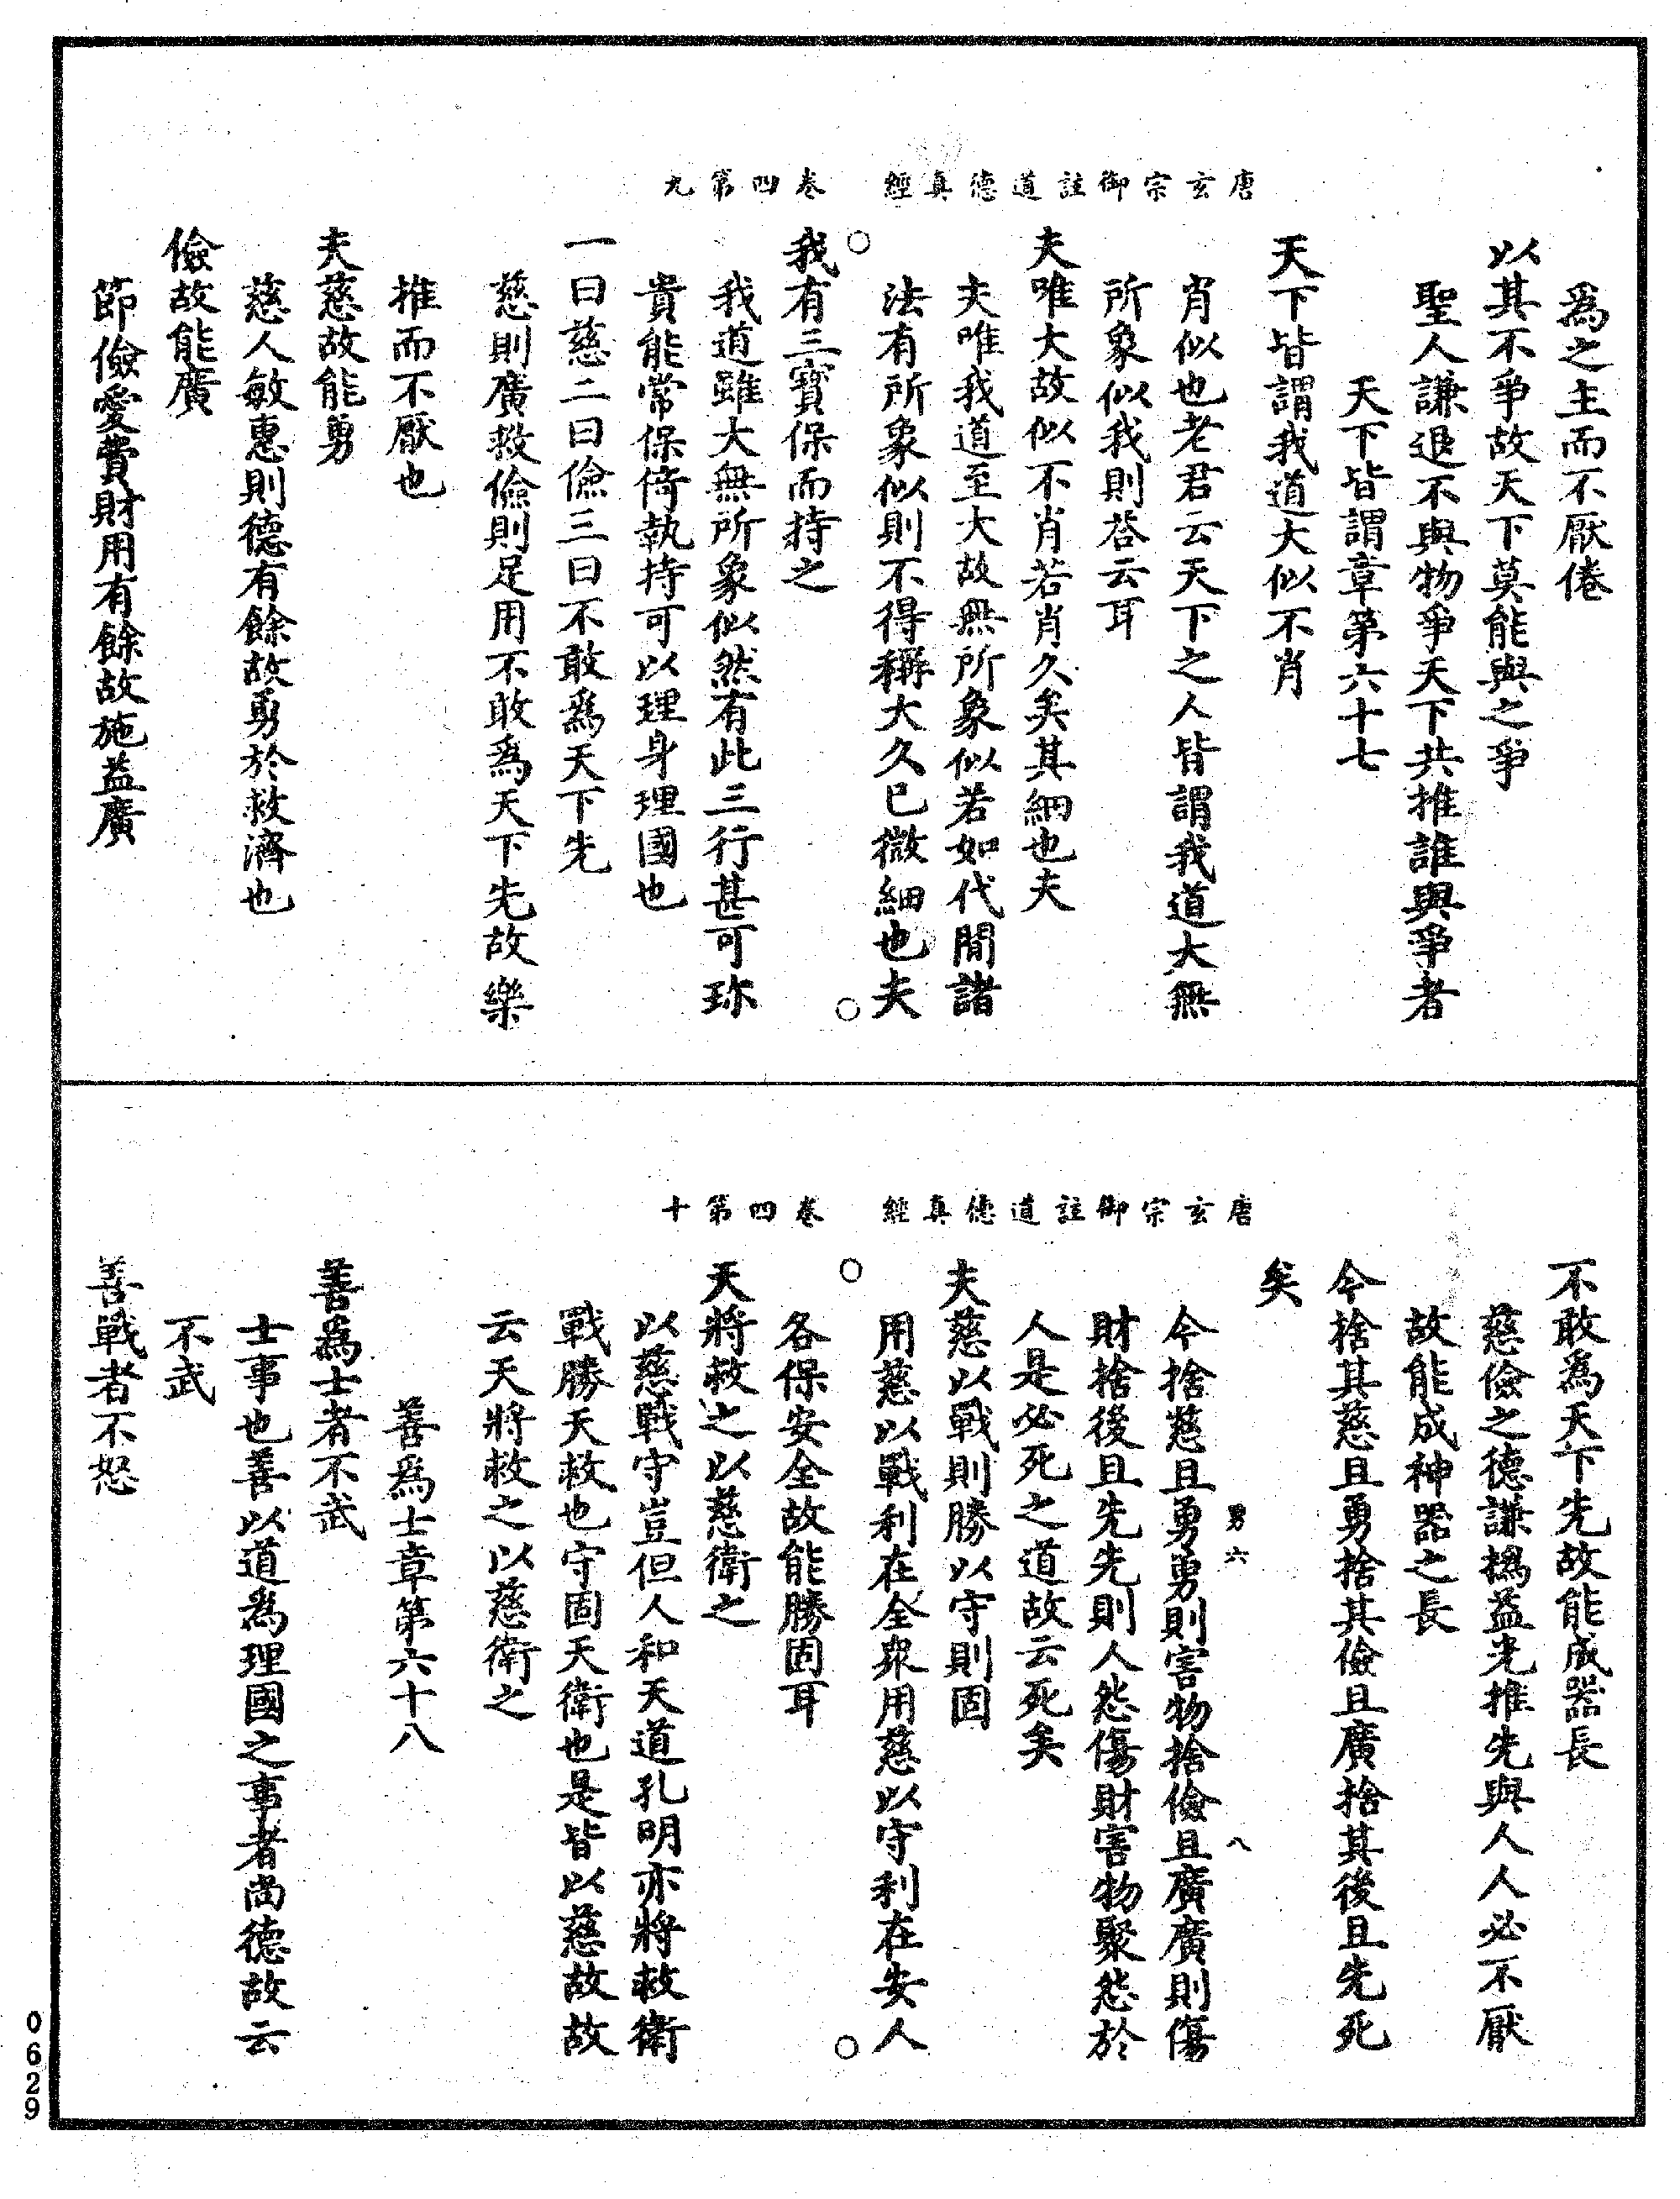 唐玄宗御註道德真經　卷四第九
爲之主而不厭倦
以其不爭故天下莫能與之爭
聖人謙退不與物爭天下共推誰與爭者
天下皆謂章第六十七
天下皆謂我道大似不肖
肖似也老君云天下之人皆謂我道大無
所象似我則答云耳
夫唯大故似不肖若肖久矣其細也夫
夫唯我道至大故無所象似若如代間諸
法有所象似則不得稱大久已微細也夫
我有三寶保而持之
我道雖大無所象似然有此三行甚可珎
貴能常保倚執持可以理身理國也
一曰慈二曰儉三曰不敢爲天下先
慈則廣救儉則足用不敢爲天下先故樂
推而不厭也
夫慈故能勇
慈人敏惠則德有餘故勇於救濟也
儉故能廣
節儉愛費財用有餘故施益廣
唐玄宗御註道德真經　卷四第十
不敢爲天下先故能成器長
慈儉之德謙撝益光推先與人人必不厭
故能成神器之長
今捨其慈且勇捨其儉且廣捨其後且先死
矣
男六　八
今捨慈且勇勇則害物捨儉且廣廣則傷
財捨後且先先則人怨傷財害物聚怨於
人是必死之道故云死矣
夫慈以戰則勝以守則固
用慈以戰利在全衆用慈以守利在安人
各保安全故能勝固耳
天將救之以慈衛之
以慈戰守豈但人和天道孔明亦將救衛
戰勝天救也守固天衛也是皆以慈故故
云天將救之以慈衛之
善爲士章第六十八
善爲士者不武
士事也善以道爲理國之事者尚德故云
不武
善戰者不怒
0629